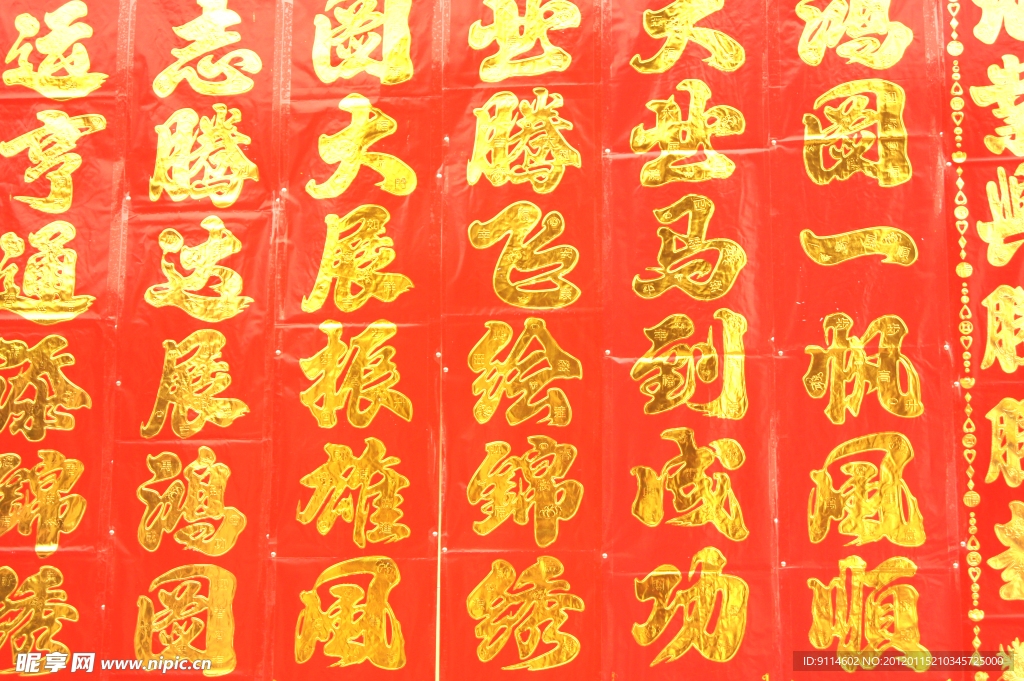 鸿图一帆风顺
大业马到成功
业腾飞绘锦绣
图大展振雄风
志腾达展鸿图
运亨通添锦绣
昵享网 www.nipic.cn
ID:9114602 NO:20120115210345725000